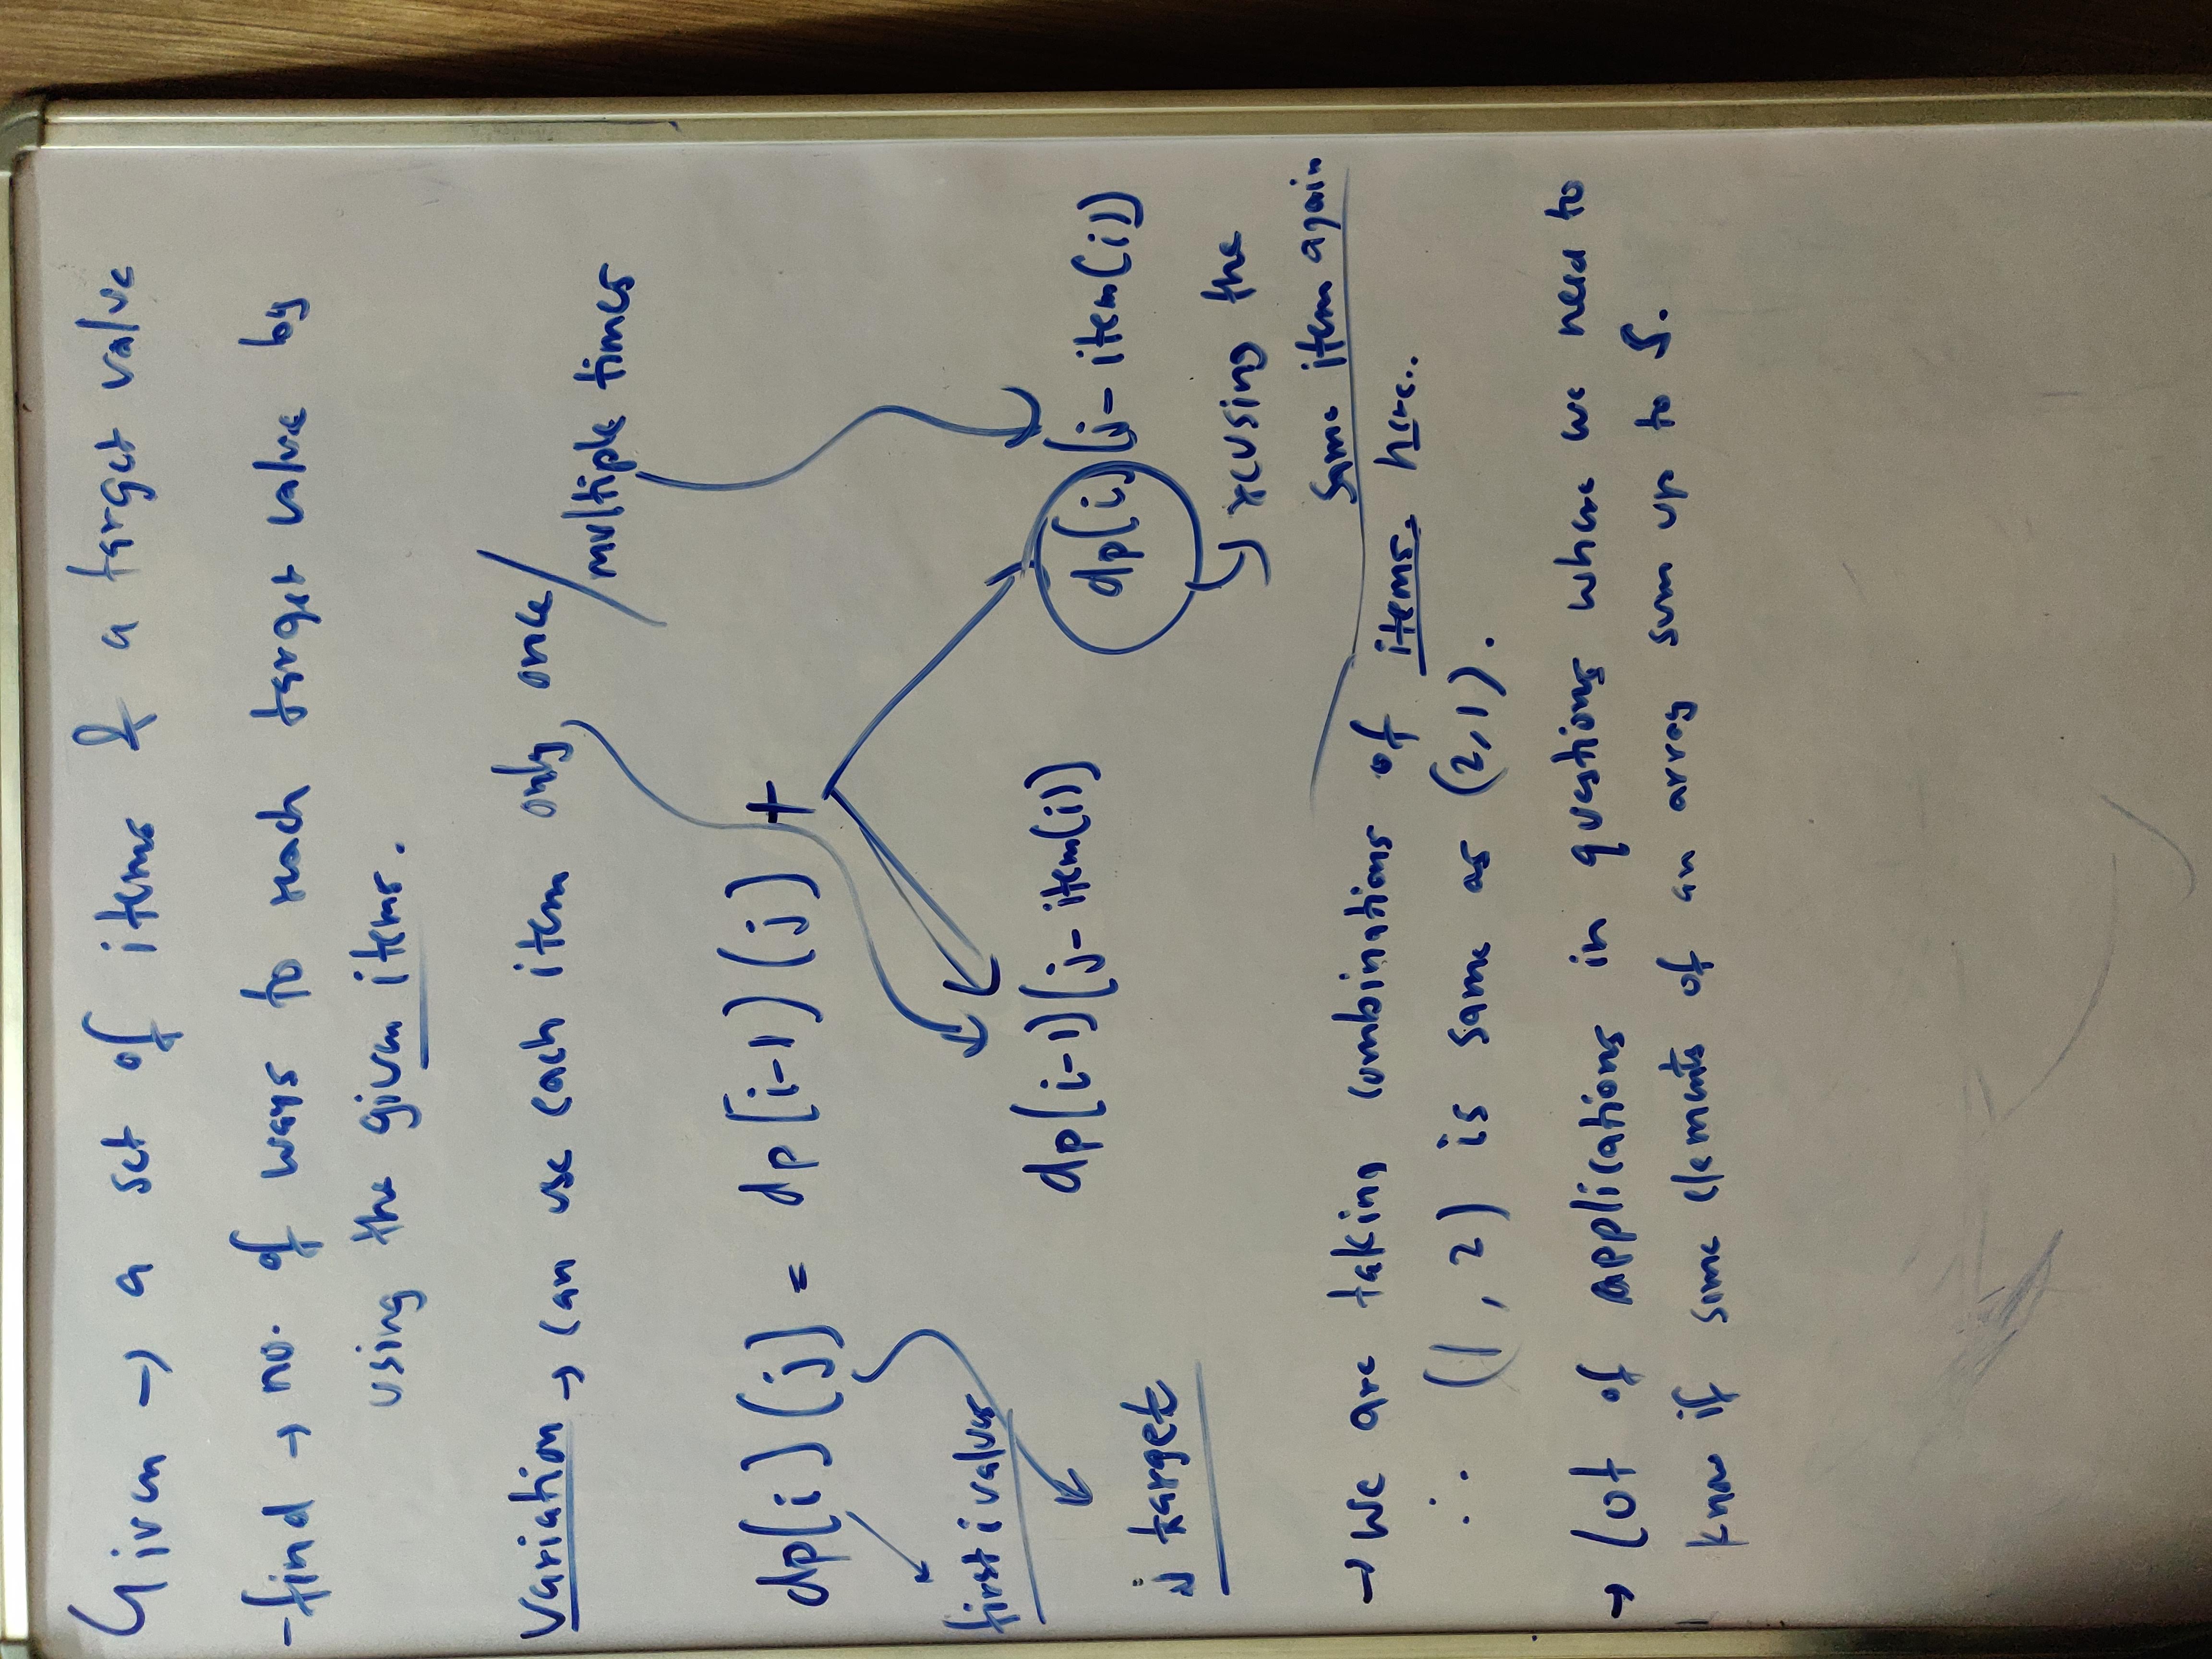 Given → a set of items & a target value
-find → no. of ways to reach target value by
using the given items.
Variation → can use each item only once/
multiple times
dp[i)(j) = dp[i-1)(j) +
first i values
dp(i-1)(j-item(i))
dp(i)(j-item(i))
j target
reusing the
same item again
→ We are taking combinations of items. here..
∴ (1, 2) is same as (2,1).
→ Lot of applications in questions where we need to
know if some elements of an array sum up to S.